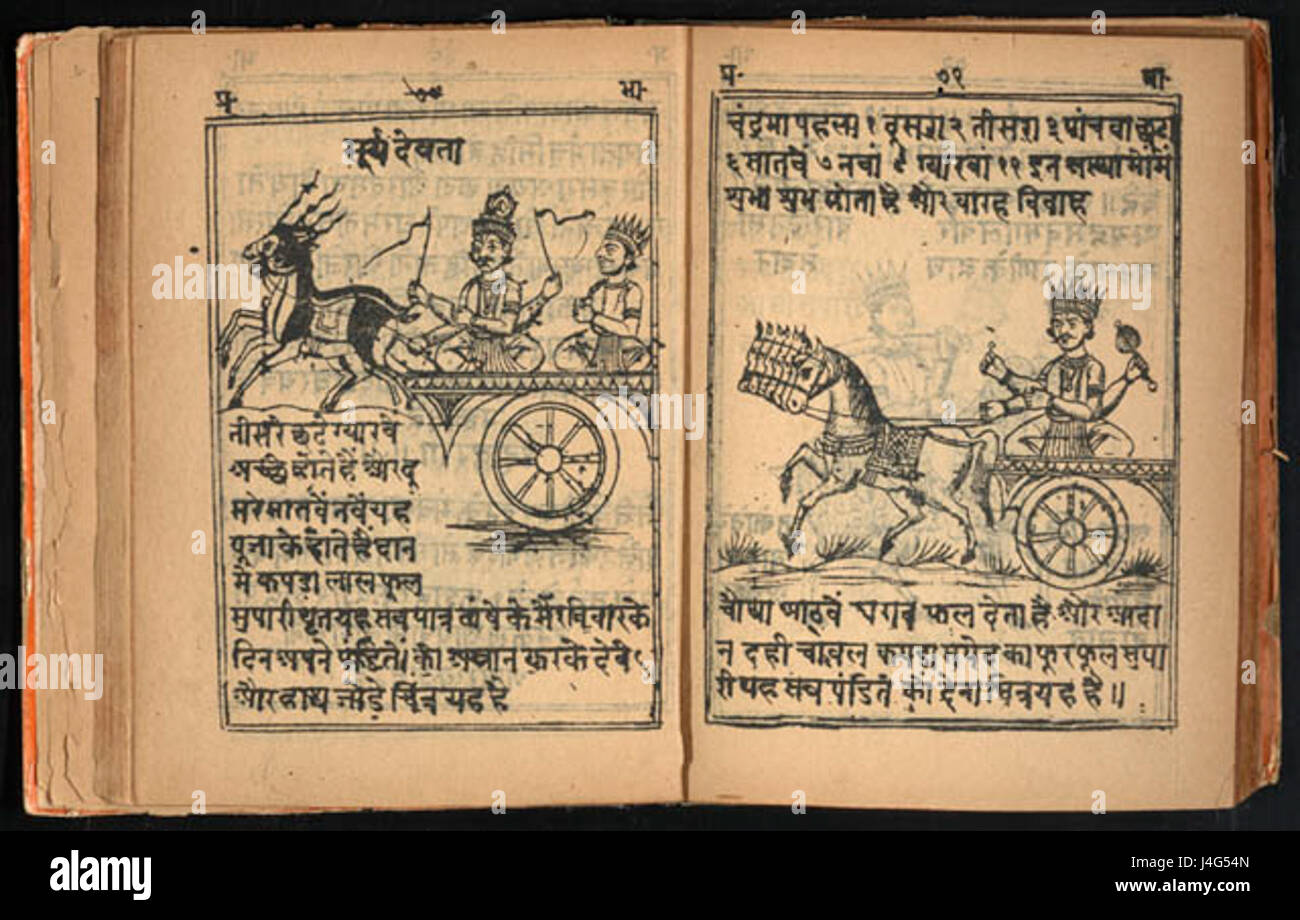 प्र. ७० भा.
सूर्य देवता
तीसरे छटे ग्यारवें
अच्छे होते हैं और दू
सरे सातवें नवें यह
पूजा के होते हैं दान
में कपड़ा लाल फूल
सुपारी घृत यह सब पात्र में रविवार के
दिन अपने पंडितों को करके देवे
और हाथ जोडे चित्र यह है
प्र. ७१ भा.
चंद्रमा पहला १ दूसरा २ तीसरा ३ पांचवा छटा
६ सातवें ७ नवां ९ ग्यारवां ११ इन
शुभ होता है और बारह
चौथा आठवें फल देता है और
न दही चावल कपड़ा सपेद फूल सुपा
री यह सब पंडित को देना चित्र यह है॥
alamy
Image ID: J4G54N
www.alamy.com